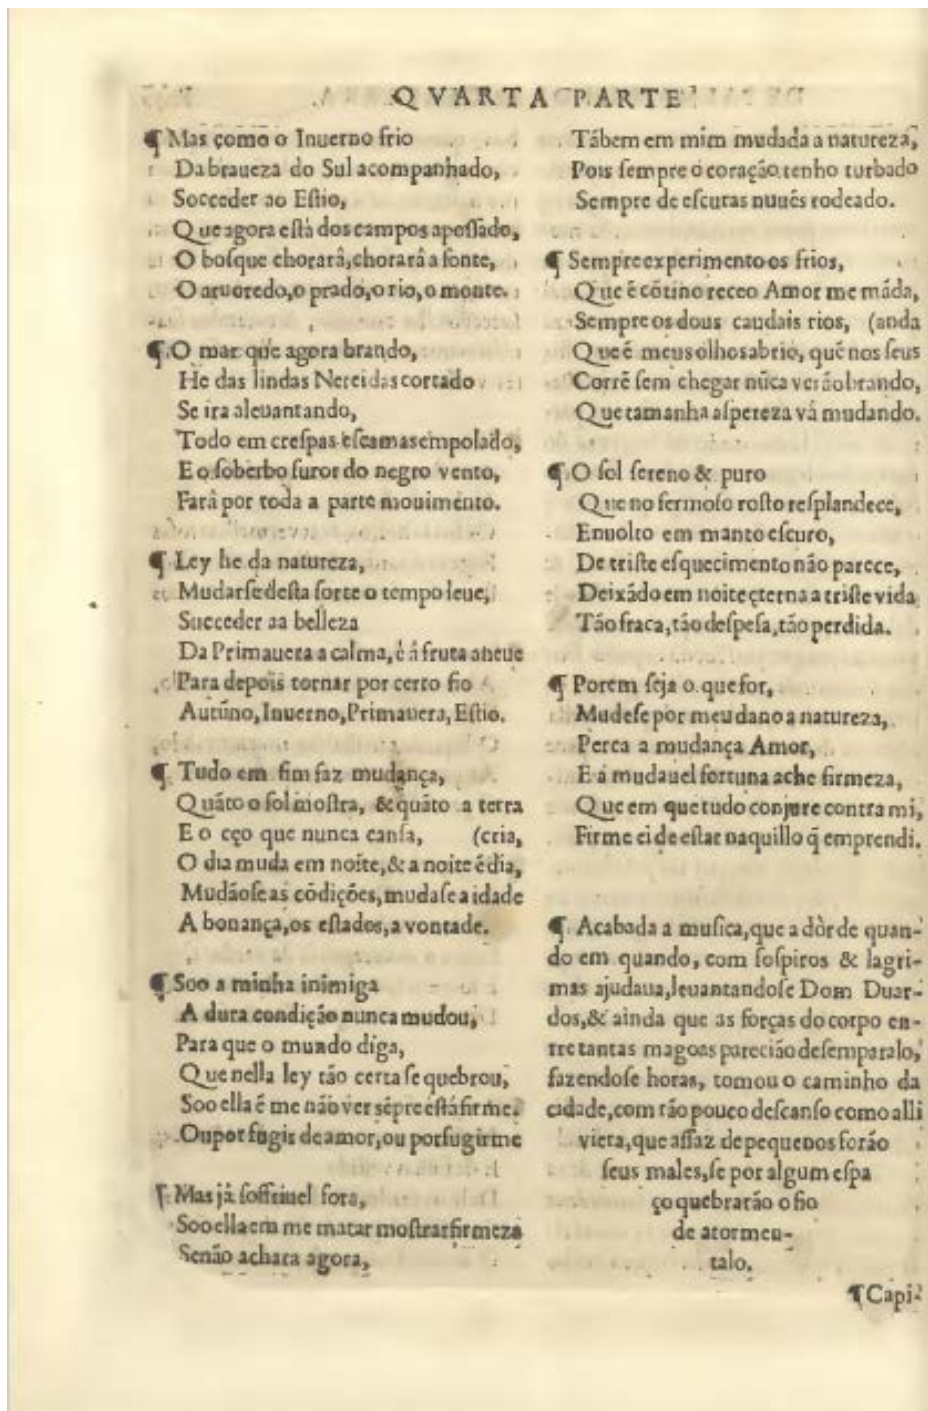 QVARTA PARTE
¶ Mas como o Inuerno frio
Da braueza do Sul acompanhado,
Socceder ao Eſtio,
Que agora eſtà dos campos apoſſado,
O boſque chorarâ, chorarâ a fonte,
O aruoredo, o prado, o rio, o monte.
¶ O mar que agora brando,
He das lindas Nereidas cortado
Se ira aleuantando,
Todo em creſpas eſcamas empolado,
E o ſoberbo furor do negro vento,
Farâ por toda a parte mouimento.
¶ Ley he da natureza,
Mudarſe deſta ſorte o tempo leue,
Succeder aa belleza
Da Primauera a calma, é á fruta a neue
Para depois tornar por certo fio
Autũno, Inuerno, Primauera, Eſtio.
¶ Tudo em fim faz mudança,
Quãto o ſol moſtra, & quãto a terra
E o cço que nunca canſa, (cria,
O dia muda em noite, & a noite é dia,
Mudãoſe as cõdições, mudaſe a idade
A bonança, os eſtados, a vontade.
¶ Soo a minha inimiga
A dura condição nunca mudou,
Para que o mundo diga,
Que nella ley tão certa ſe quebrou,
Soo ella é me não ver sẽpre eſtá firme.
Ou por fugir de amor, ou por fugirme
¶ Mas já ſoffriuel fora,
Soo ella em me matar moſtrar firmeza
Senão achara agora,
Tábem em mim mudada a natureza,
Pois ſempre o coração tenho turbado
Sempre de eſcuras nuuẽs rodeado.
¶ Sempre experimento os frios,
Que é cõtino receo Amor me máda,
Sempre os dous caudais rios, (anda
Que é meus olhos abrio, quẽ nos ſeus
Corrẽ ſem chegar nũca verão brando,
Que tamanha aſpereza vá mudando.
¶ O ſol ſereno & puro
Que no fermoſo roſto reſplandece,
Enuolto em manto eſcuro,
De triſte eſquecimento não parece,
Deixádo em noite çterna a triſte vida
Tão fraca, tão deſpeſa, tão perdida.
¶ Porem ſeja o que for,
Mudeſe por meu dano a natureza,
Perca a mudança Amor,
E á mudauel fortuna ache firmeza,
Que em que tudo conjure contra mi,
Firme ei de eſtar naquillo q̃ emprendi.
¶ Acabada a muſica, que a dòr de quan-
do em quando, com ſoſpiros & lagri-
mas ajudaua, leuantandoſe Dom Duar-
dos, & ainda que as forças do corpo en-
tre tantas magoas parecião deſemparalo,
fazendoſe horas, tomou o caminho da
cidade, com tão pouco deſcanſo como alli
viera, que aſſaz de pequenos forão
ſeus males, ſe por algum eſpa
ço quebrarão o fio
de atormen-
talo.
¶ Capi-